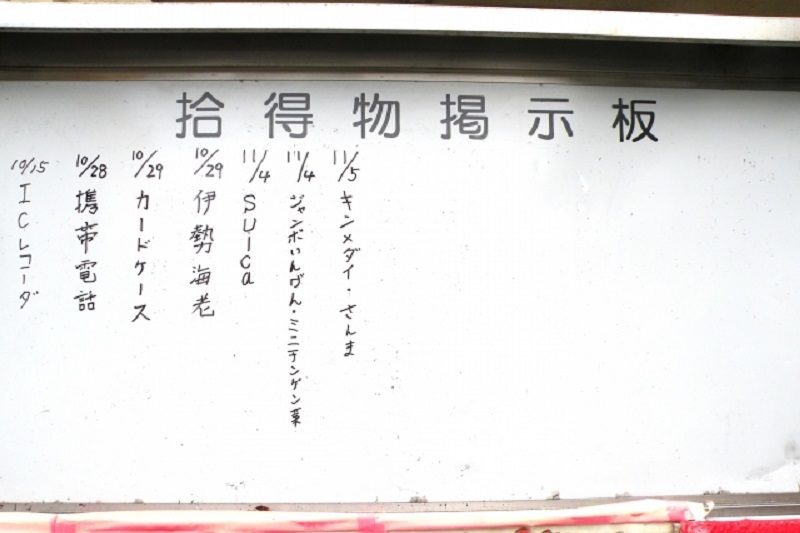 拾得物掲示板
10/15 ICレコーダ
10/28 携帯電話
10/29 カードケース
10/29 伊勢海老
11/4 SUICa
11/4 ジャンボいんげん・ミニチンゲン菜
11/5 キンメダイ・さんま